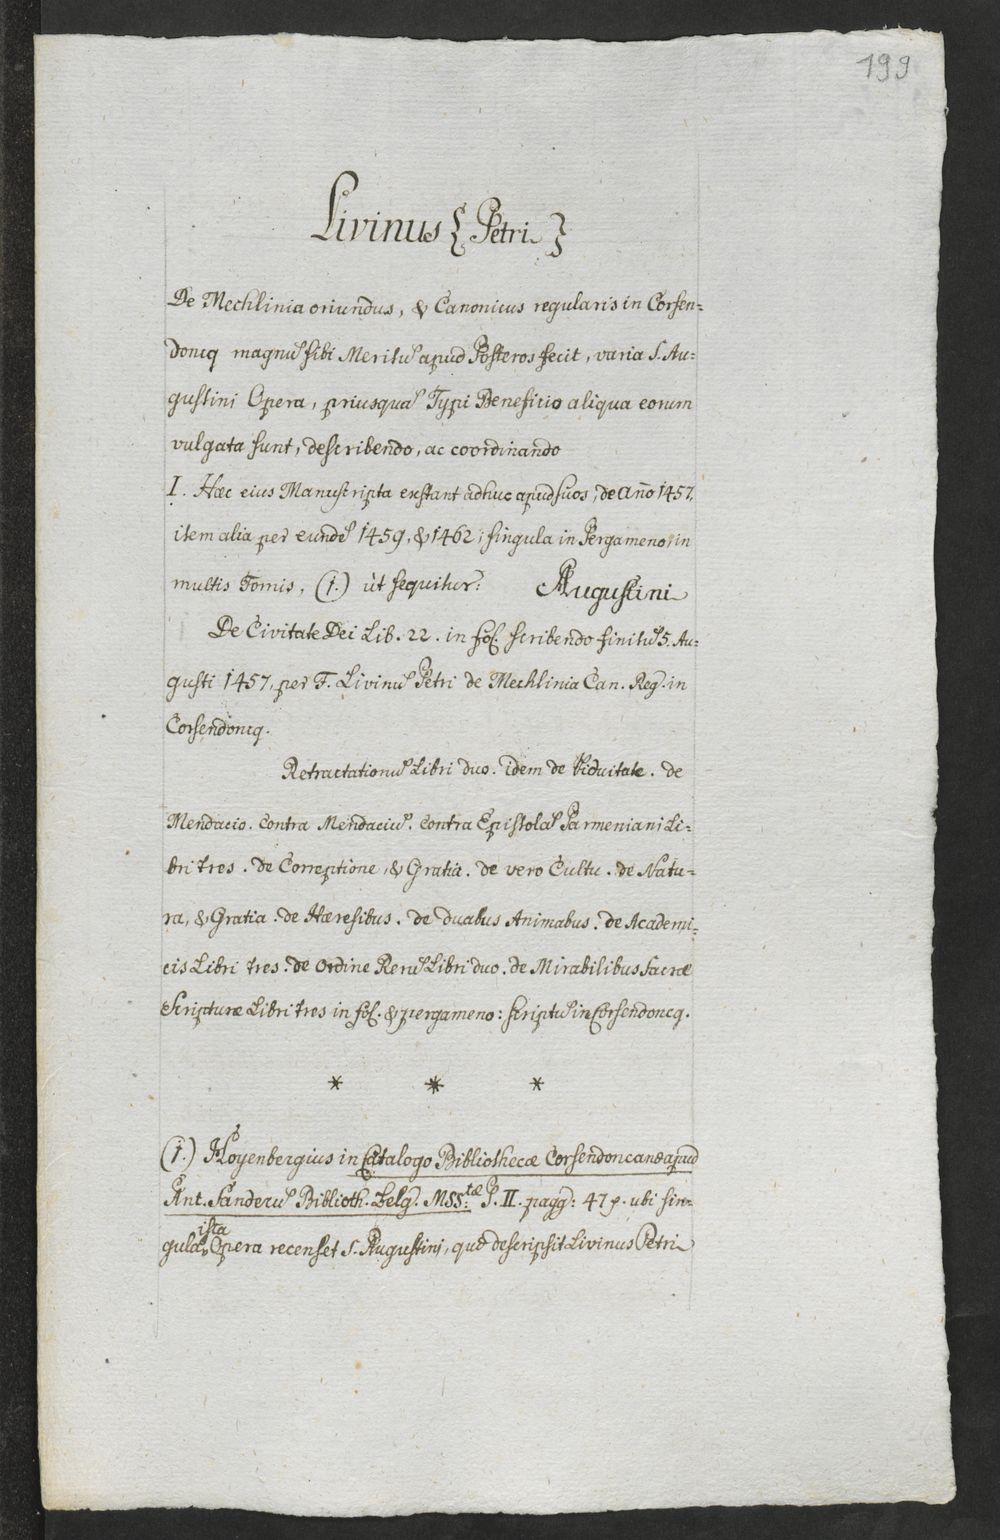 199
Livinus { Petri }
De Mechlinia oriundus, & Canonicus regularis in Corsen=
doncq magnū sibi Meritū apud Posteros fecit, varia S. Au=
gustini Opera, priusquā Typi Beneficio aliqua eorum
vulgata sunt, describendo, ac coordinando
I. Hæc eius Manuscripta exstant adhuc apud suos, de año 1457.
item alia per eundē 1459, & 1462, singula in Pergameno, in
multis Tomis, (1.) ùt sequitur: Augustini
De Civitate Dei Lib. 22. in fol. scribendo finitū 5. Au=
gusti 1457, per F. Livinū Petri de Mechlinia Can. Reg. in
Corsendoncq.
Retractationū Libri duo. idem de Viduitate. de
Mendacio. contra Mendaciū. contra Epistolā Parmeniani Li=
bri tres. de Correptione, & Gratia. de vero Cultu. de Natu=
ra, & Gratia. de Hæresibus. de duabus Animabus. de Academi=
cis Libri tres. de Ordine Rerū Libri duo. de Mirabilibus Sacræ
Scripturæ Libri tres in fol. & pergameno: scriptū in Corsendoncq.
* * *
(1.) Hoyenbergius in Catalogo Bibliothecæ Corsendoncanæ apud
Ant. Sanderū Biblioth. Belg. MSS:tæ P. II. pagg: 47. ubi sin=
gula ista Opera recenset S. Augustini, quæ descripsit Livinus Petri